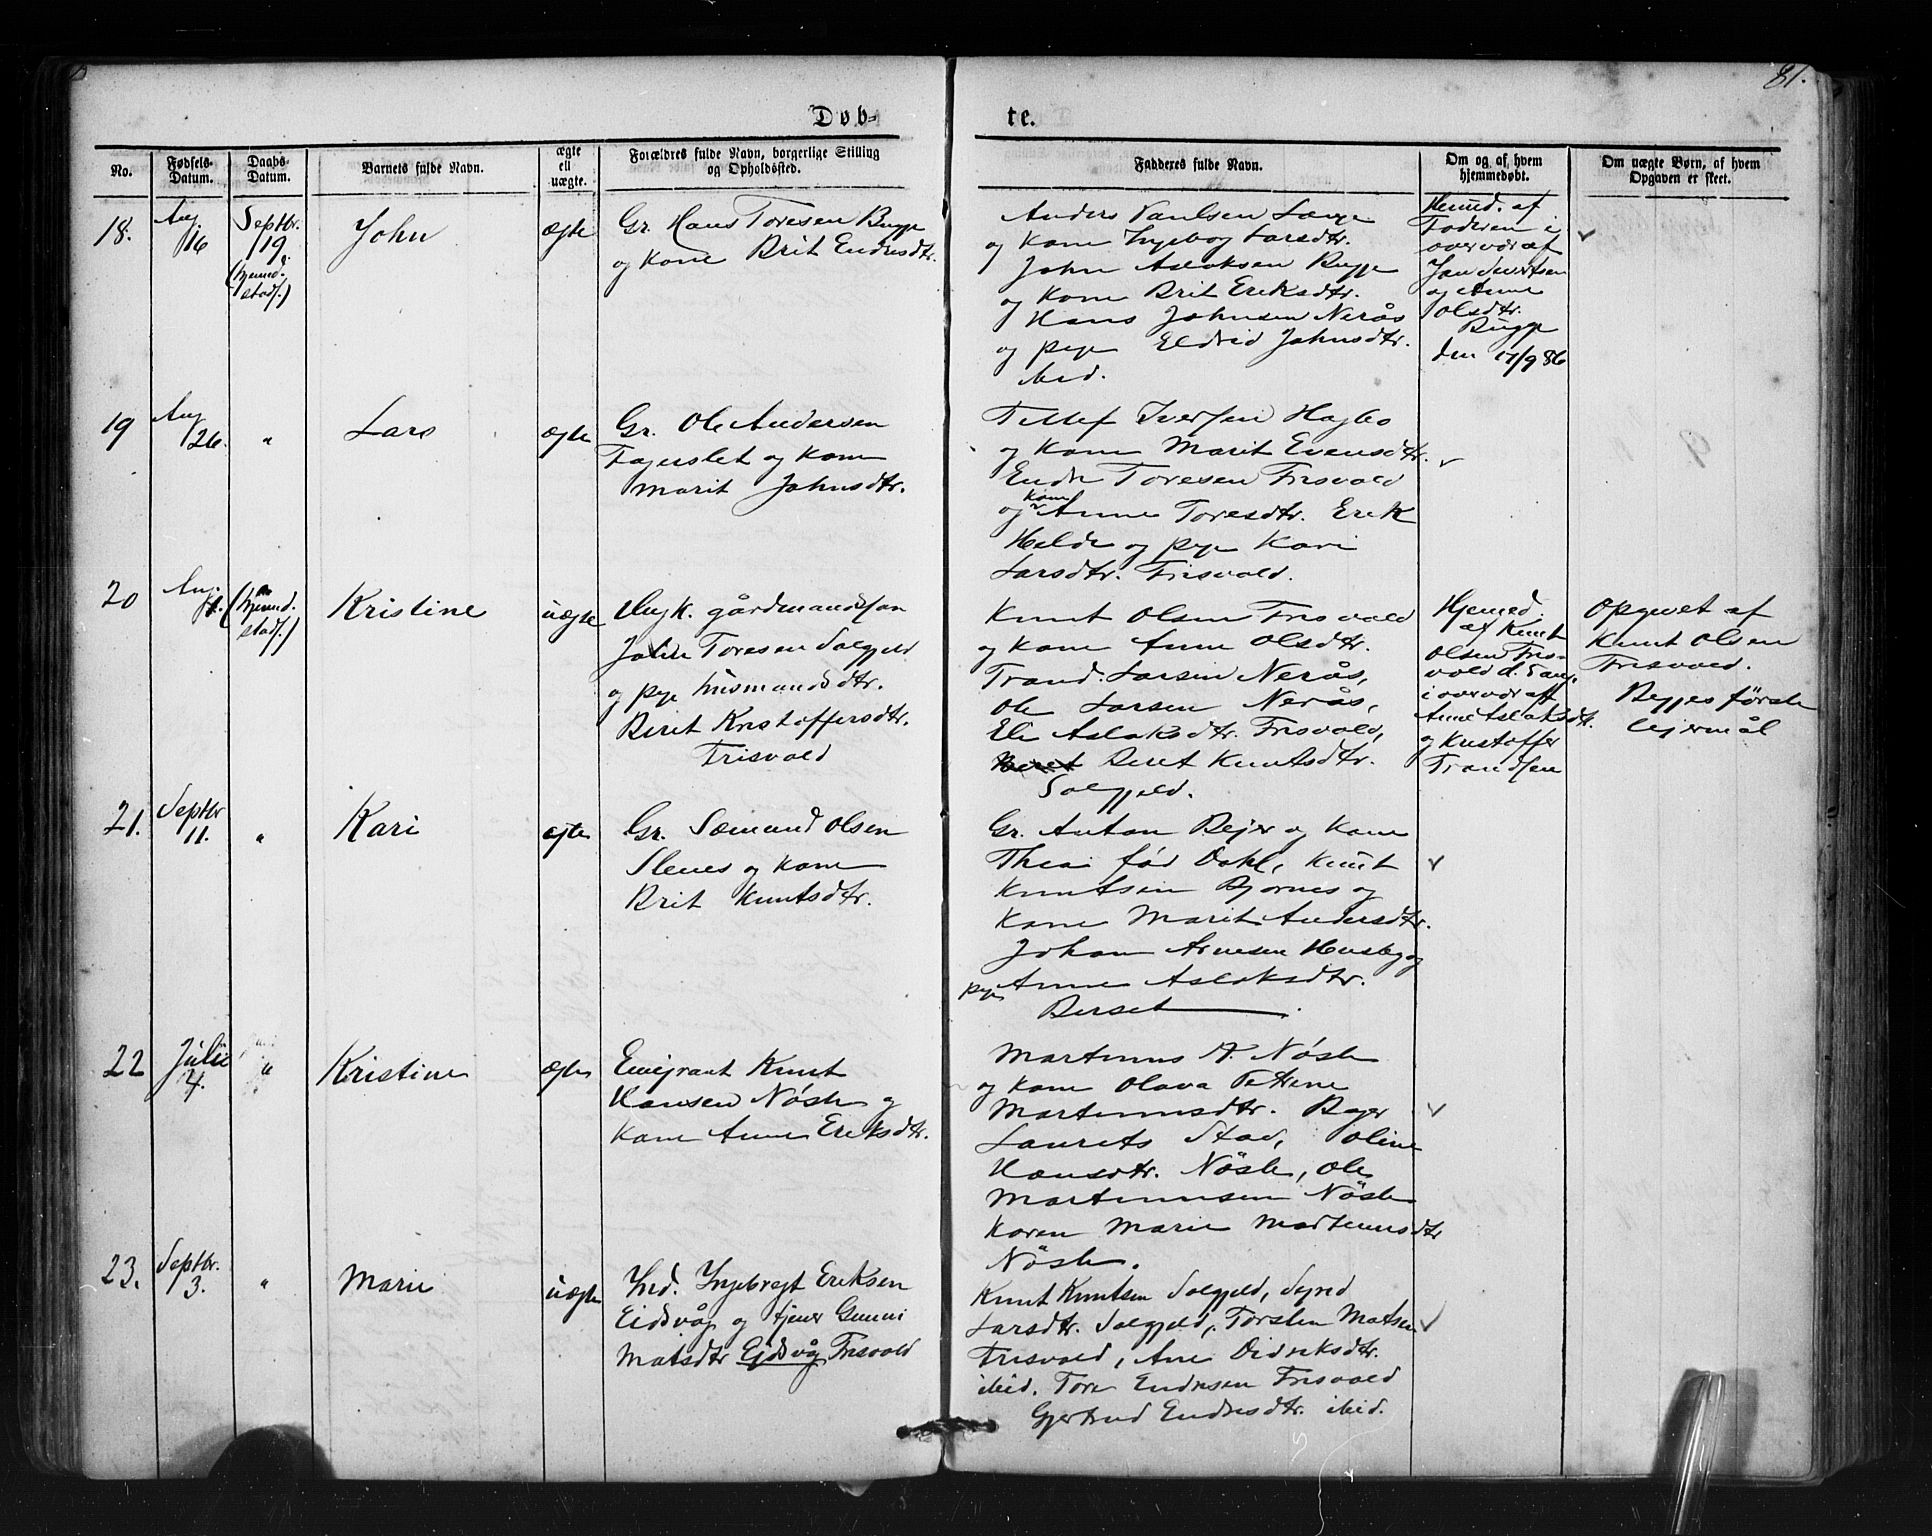 81.
Døb-
te.
No.
Fødsels-
Datum.
Daabs-
Datum.
Barnets fulde Navn.
ægte
ell
uægte.
Forældres fulde Navn, borgerlige Stilling
og Opholdssted.
Fadderes fulde Navn.
Om og af hvem
hjemmedøbt.
Om uægte Børn, af hvem
Opgaven er skeet.
18.
Aug
16
Septbr.
19
(hjemd.
stadf.)
John
ægte
Gr. Hans Toresen Bugge
og Kone Brit Endresdtr.
Anders Paulsen Lange
og Kone Ingebog Larsdtr.
John Aslaksen Bugge
og Kone Brit Eriksdtr.
Hans Johnsen Nerås
og pige Eldrid Johnsdtr.
ibid.
Hemd. af
Faderen i
overvær af
Jan Sivertsen
og Anne
Olsdtr.
Bugge
den 17/9 86
19
Aug
26.
"
Lars
ægte
Gr. Ole Andersen
Fagerslet og Kone
Marit Johnsdtr.
Tellef Iversen Hagbø
og Kone Marit Evensdtr.
Endre Toresen Frisvold
Kone
og Anne Toresdtr. Erik
Helde og pige Kari
Larsdtr. Frisvold.
20
Aug
"
(hjemd.
stadf.)
Kristine
uægte
Ungk. gårdmandssøn
John Toresen Solgjeld
og pige husmandsdtr.
Beret Kristoffersdtr.
Frisvold
Knut Olsen Frisvold
og Kone Anne Olsdtr.
Trond Larsen Nerås,
Ole Larsen Nerås,
Eli Aslaksdtr. Frisvold,
Beret Beret Knutsdtr.
Solgjeld.
Hjemed.
af Knut
Olsen Fris-
vold d.
i overvær af
Anne Aslaksdtr.
og Kristoffer
Trondsen
Opgivet af
Knut Olsen
Frisvold.
Begges første
lejermål
21.
Septbr
11.
"
Kari
ægte
Gr. Sæmund Olsen
Slenes og Kone
Brit Knutsdtr.
Gr. Anton Bejer og Kone
Thea fød Dahl, Knut
Knutsen Bjørnes og
Kone Marit Andersdtr.
Johan Arnesen Husby og
pige Anne Aslaksdtr.
Berset
22
Julii
4.
"
Kristine
ægte
Emigrant Knut
Hansen Nøsle og
Kone Anne Eriksdtr.
Martinus A. Nøsle
og Kone Olava Petrine
Martinusdtr. Boger
Laurits Stad, Oline
Hansdtr. Nøsle, Ole
Martinussen Nøsle
Karen Marie Martinusdtr
Nøsle.
23.
Septbr.
3.
"
Marie
uægte
Ind. Ingebregt Eriksen
Eidsvåg og tjener Gunni
Matsdtr Ejdsvåg Frisvold
Knut Knutsen Solgjeld, Sigrid
Larsdtr. Solgjeld, Torsten Matsen
Frisvold, Ane Didriksdtr.
ibid. Tore Endresen Frisvold
Gjertrud Endresdtr. ibid.